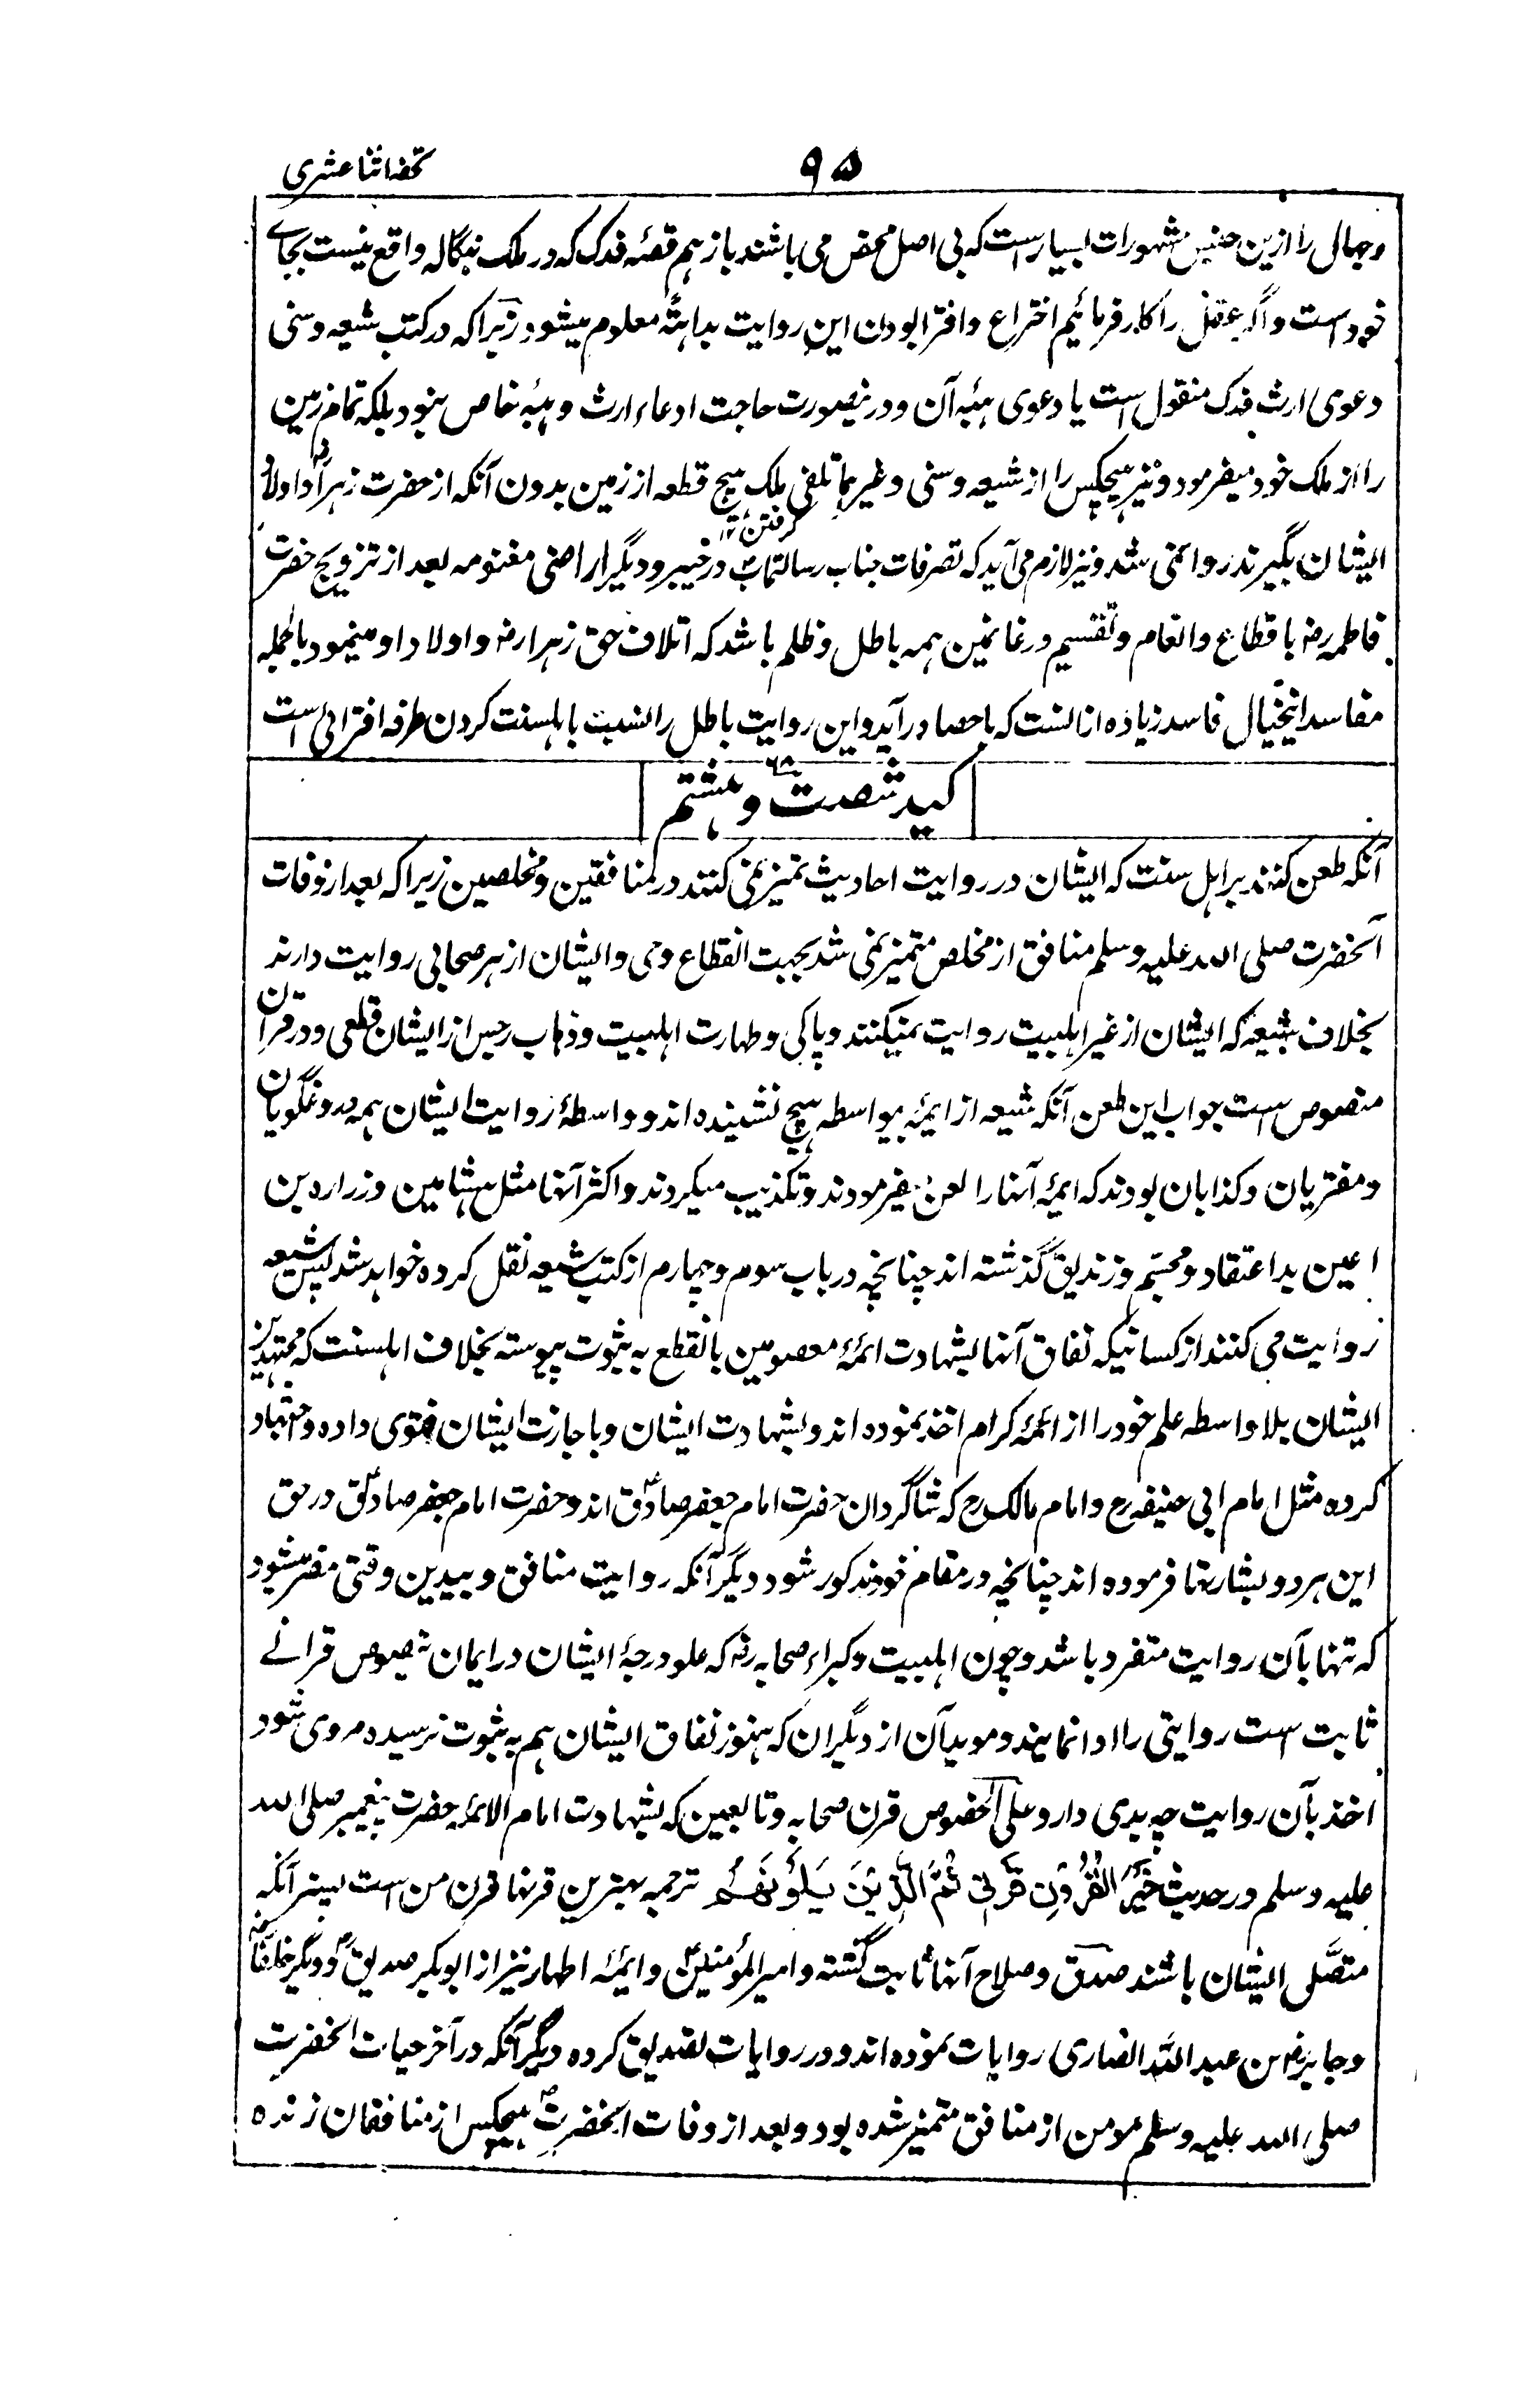 ۹۵
تحفه اثنا عشری
وجهال را ازین جنس مشهورات بسیار است که بی اصل محض می باشند باز هم قصهٔ فدک که در ملک بنگاله واقع نیست بجاے
خود است و اگر عقل را کار فرمائیم اختراع و افترا بودن این روایت بداهةً معلوم میشود زیرا که در کتب شیعه و سنی
دعوی ارث فدک منقول است یا دعوی هبهٔ آن و درینصورت حاجت ادعاء ارث و هبهٔ خاص نبود بلکه تمام زمین
را از ملک خود میفرمود و نیز هیچکس را از شیعه و سنی و غیرهما تلقی ملک هیچ قطعه از زمین بدون آنکه از حضرت زهرا رض و اولاد
ایشان بگیرند روا نمی شد و نیز لازم می آید که تصرفات جناب رسالتمآب در خیبر و دیگر اراضی مغنومه بعد از تزویج حضرت
فاطمه رض با قطاع و انعام و تقسیم در غانمین همه باطل و ظلم باشد که اتلاف حق زهرا رض و اولاد او مینمود بالجمله
مفاسد اینخیال فاسد زیاده از آنست که باحصا در آید و این روایت باطل را نسبت باهلسنت کردن طرفه افترائی است
کید شصت و هشتم ۶۸
آنکه طعن کنند بر اهل سنت که ایشان در روایت احادیث تمیز نمی کنند در منافقین و مخلصین زیرا که بعد از وفات
آنحضرت صلی الله علیه وسلم منافق از مخلص متمیز نمی شد بجهت انقطاع وحی و ایشان از هر صحابی روایت دارند
بخلاف شیعه که ایشان از غیر اهلبیت روایت نمیکنند و پاکی و طهارت اهلبیت و ذهاب رجس از ایشان قطعی و در قرآن
منصوص است جواب این طعن آنکه شیعه از ایمهٔ بیواسطه هیچ نشنیده اند و واسطهٔ روایت ایشان همه دروغگویان
و مفتریان و کذابان بودند که ایمه آنها را لعن میفرمودند و تکذیب میکردند و اکثر آنها مثل هشامین و زراره بن
اعین بد اعتقاد و مجسم و زندیق گذشته اند چنانچه در باب سوم و چهارم از کتب شیعه نقل کرده خواهد شد پس شیعه
روایت می کنند از کسانیکه نفاق آنها بشهادت ائمهٔ معصومین بالقطع به ثبوت پیوسته بخلاف اهلسنت که مجتهدین
ایشان بلا واسطه علم خود را از ائمهٔ کرام اخذ نموده اند و بشهادت ایشان و با جازت ایشان فتوی داده و اجتهاد
کرده مثل امام ابی حنیفه رح و امام مالک رح که شاگردان حضرت امام جعفر صادق اند و حضرت امام جعفر صادق در حق
این هر دو بشارتها فرموده اند چنانچه در مقام خود مذکور شود دیگر آنکه روایت منافق و بیدین وقتی مضر میشود
که تنها بآن روایت متفرد باشد و چون اهلبیت و کبراء صحابه رض که علو درجهٔ ایشان در ایمان بنصوص قرانے
ثابت است روایتی را ادا نمایند و موید آن از دیگران که هنوز نفاق ایشان هم به ثبوت نرسیده مروی شود
اخذ بآن روایت چه بدی دارد علی الخصوص قرن صحابه و تابعین که بشهادت امام الائمه حضرت پیغمبر صلی الله
علیه وسلم در حدیث خَیْرُ الْقُرُوْنِ قَرْنِیْ ثُمَّ الَّذِیْنَ یَلُوْنَهُمْ ترجمه بهترین قرنها قرن من است پستر آنکه
متصل ایشان باشند صدق و صلاح آنها ثابت گشته و امیر المؤمنین و ایمهٔ اطهار نیز از ابوبکر صدیق و دیگر خلفا
و جابر بن عبد الله انصاری روایات نموده اند و در روایات تصدیق کرده دیگر آنکه در آخر حیات آنحضرت
صلی الله علیه وسلم مومن از منافق متمیز شده بود و بعد از وفات آنحضرت هیچکس از منافقان زنده